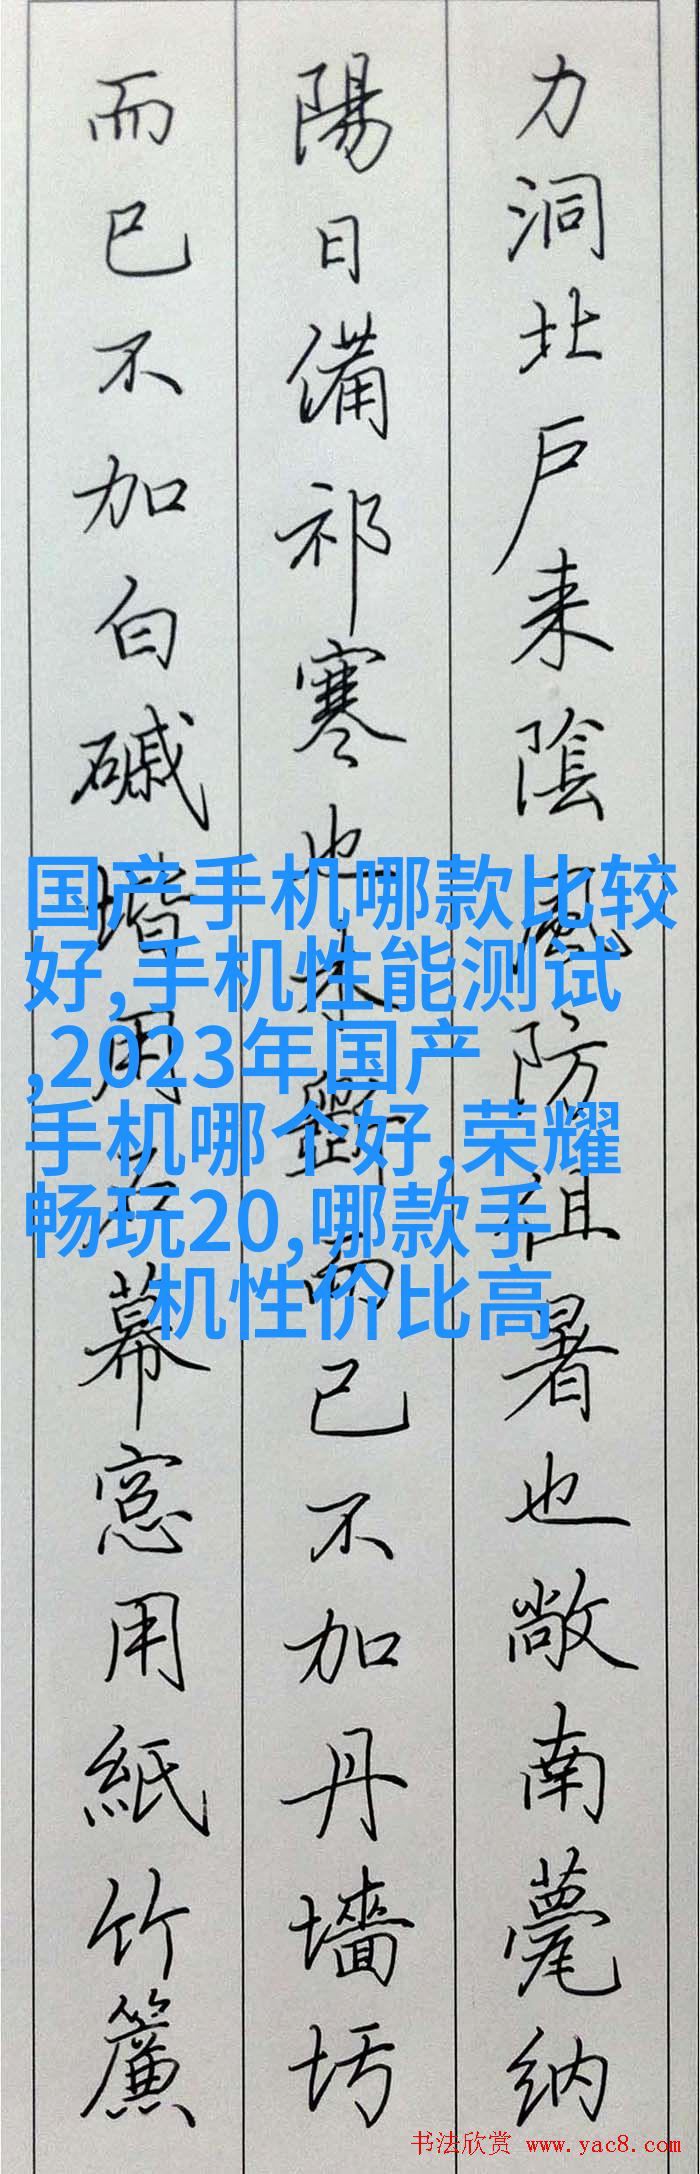 力洞北户来陰風防徂暑也敞南甍纳
陽日備祁寒也木斲而已不加丹墻圬
而已不加白磩堦用石幕窓用紙竹簾
国产手机哪款比较
好,手机性能测试
,2023年国产
手机哪个好,荣耀
畅玩20,哪款手
机性价比高
书法欣赏 www.yac8.com